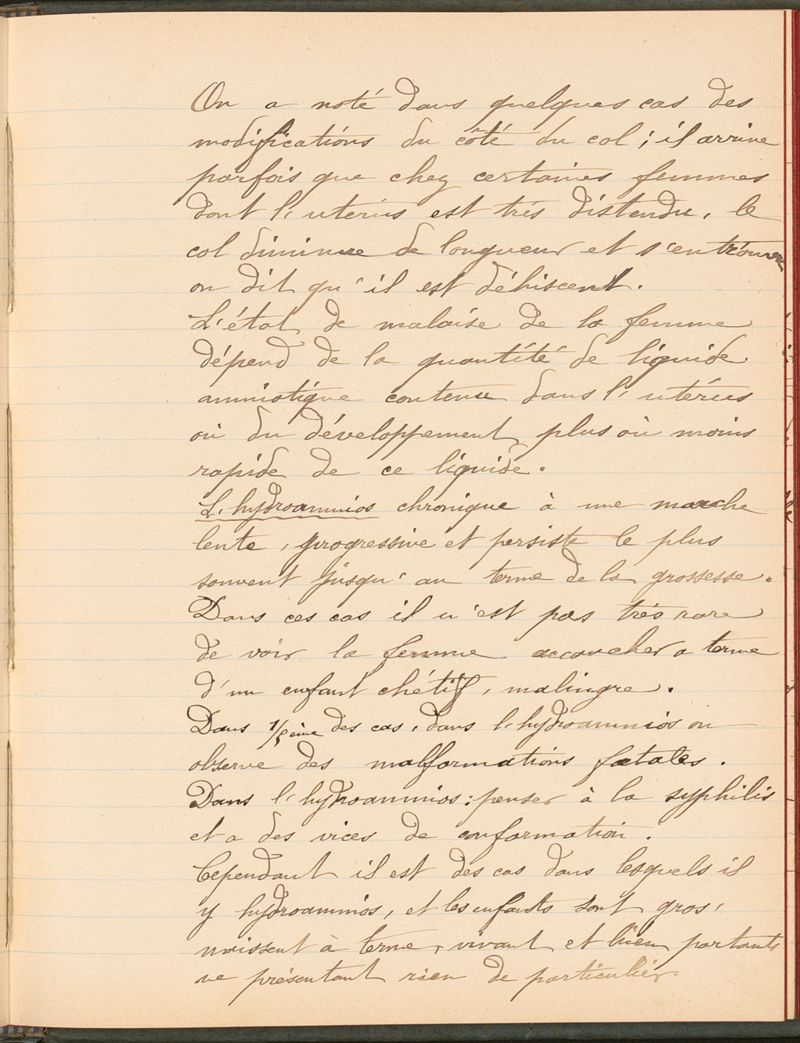 On a noté dans quelques cas des
modifications du côté du col ; il arrive
parfois que chez certaines femmes
dont l'uterus est très distendu, le
col diminue de longueur et s'entrouvre
on dit qu'il est déhiscent.
L'état de malaise de la femme
dépend de la quantité de liquide
amniotique contenu dans l'utérus
ou du développement plus ou moins
rapide de ce liquide.
L'hydroamnios chronique à une marche
lente, progressive et persiste le plus
souvent jusqu'au terme de la grossesse.
Dans ces cas il n'est pas très rare
de voir la femme accoucher a terme
d'un enfant chétif, malingre.
Dans 1/5ème des cas, dans l'hydroamnios on
observe des malformations fœtales.
Dans l'hydroamnios : penser à la syphilis
et a des vices de conformation.
Cependant il est des cas dans lesquels il
y hydroamnios, et les enfants sont gros,
naissent à terme, vivant et bien portants
ne présentant rien de particulier.